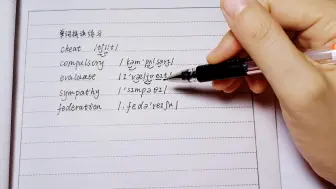 英语拼读练习
cheat /tʃiːt/
compulsory /kəm'pʌlsərɪ/
evaluate /ɪ'væljʊeɪt/
sympathy /'sɪmpəθɪ/
federation /ˌfedə'reɪʃn/